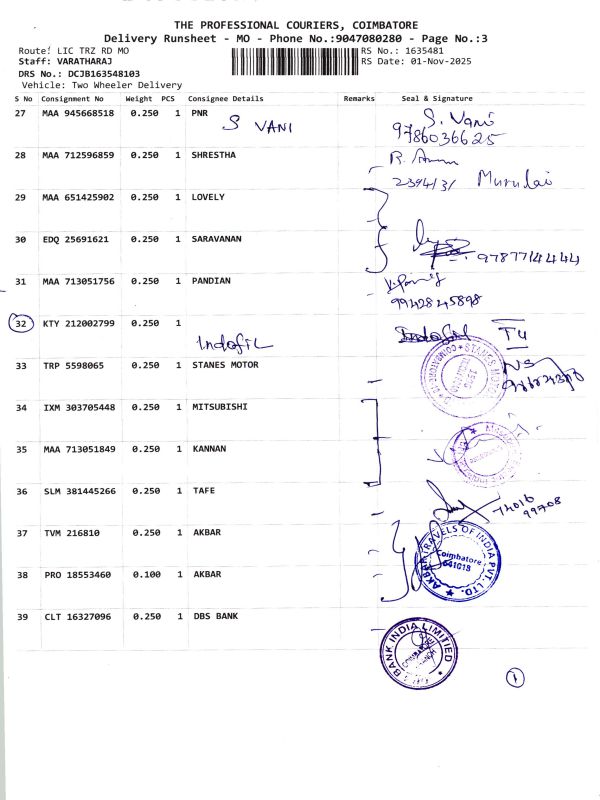 THE PROFESSIONAL COURIERS, COIMBATORE
Delivery Runsheet - MO - Phone No.:9047080280 - Page No.:3
Route: LIC TRZ RD MO
RS No.: 1635481
Staff: VARATHARAJ
RS Date: 01-Nov-2025
DRS No.: DCJB163548103
Vehicle: Two Wheeler Delivery
S No Consignment No Weight PCS Consignee Details Remarks Seal & Signature
27 MAA 945668518 0.250 1 PNR
S VANI
S. Vani
9786036625
28 MAA 712596859 0.250 1 SHRESTHA
Murulai
29 MAA 651425902 0.250 1 LOVELY
30 EDQ 25691621 0.250 1 SARAVANAN
9787714444
31 MAA 713051756 0.250 1 PANDIAN
9942845898
32 KTY 212002799 0.250 1
Indofil
Indofil
33 TRP 5598065 0.250 1 STANES MOTOR
34 IXM 303705448 0.250 1 MITSUBISHI
35 MAA 713051849 0.250 1 KANNAN
36 SLM 381445266 0.250 1 TAFE
74016
99708
37 TVM 216810 0.250 1 AKBAR
AKBAR TRAVELS OF INDIA PVT. LTD.
Coimbatore
641018
38 PRO 18553460 0.100 1 AKBAR
39 CLT 16327096 0.250 1 DBS BANK
BANK INDIA LIMITED
1